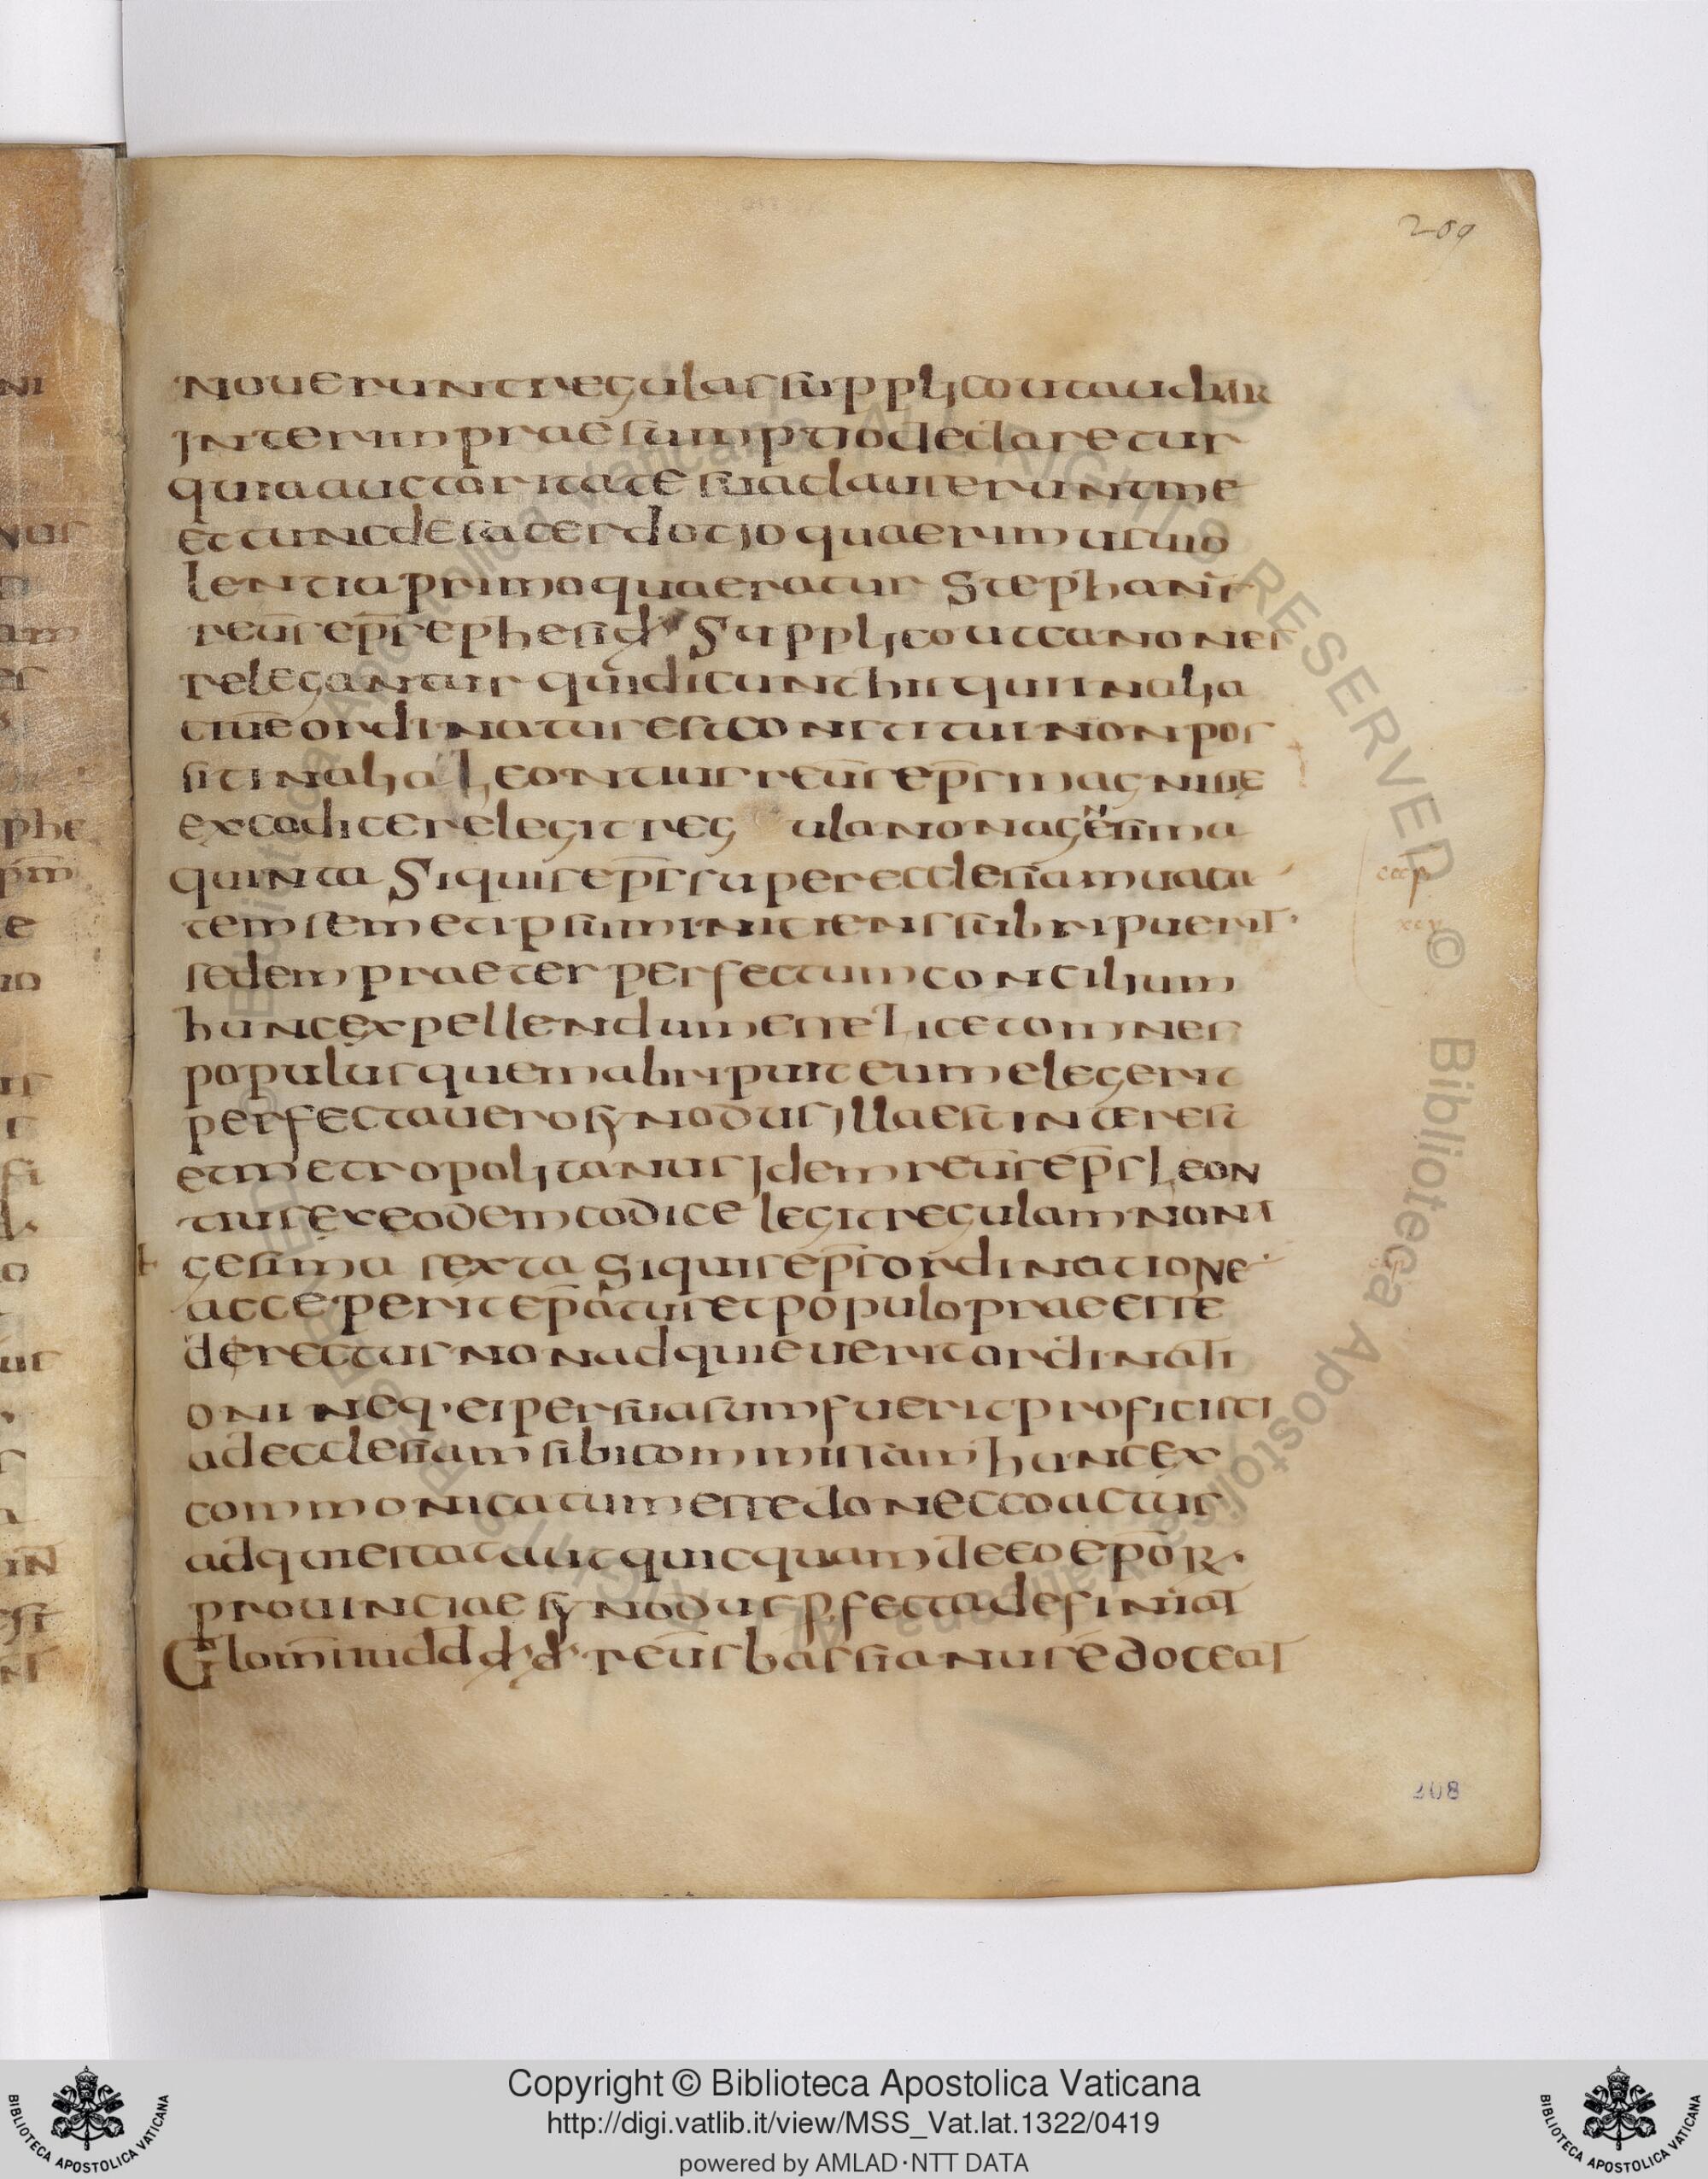 209
noueruntregulassupplicoutaudiar
interimpraesumptiodeclaretur
quiaauctoritatesuaclauseruntme
ettuncdesacerdotioquaerimusuio
lentiaprimoquaeratur Stephanus
reūs ep̄s ephesi d' Supplicoutcanones
relegantur quidicunt hisquiinalia
tiueordinatusestconstituinonpos
sitinalia Leontius reūs ep̄s magnisię
excodicerelegitreg ulanonagesima
quinta Siquisep̄ssuperecclesiamuaca
temsemetipsuminitienssubripuerit
sedem praeter perfectum concilium
huncexpellendumesse Licetomnes
populusquemabripuiteumelegerit
perfectauerosynodusillaestinterest
etmetropolitanus Idem reūs ep̄s Leon
tiusexeodemcodice legitregulamnona
gesima sexta Siquisep̄sordinatione
acce·peritep̄atusetpopulopraeesse
derectusnonadquieueritordinati
onineq·eipersuasumfueritproficisci
adecclesiamsibicommissam huncex
commonicatumessedoneccoactus
adquiescatautquicquamdeeoep̄oR·
prouinciaesynodus pfectadefiniat
Glom̄iudd d'd' reūs bassianus edoceat
208
Copyright © Biblioteca Apostolica Vaticana
http://digi.vatlib.it/view/MSS_Vat.lat.1322/0419
powered by AMLAD·NTT DATA